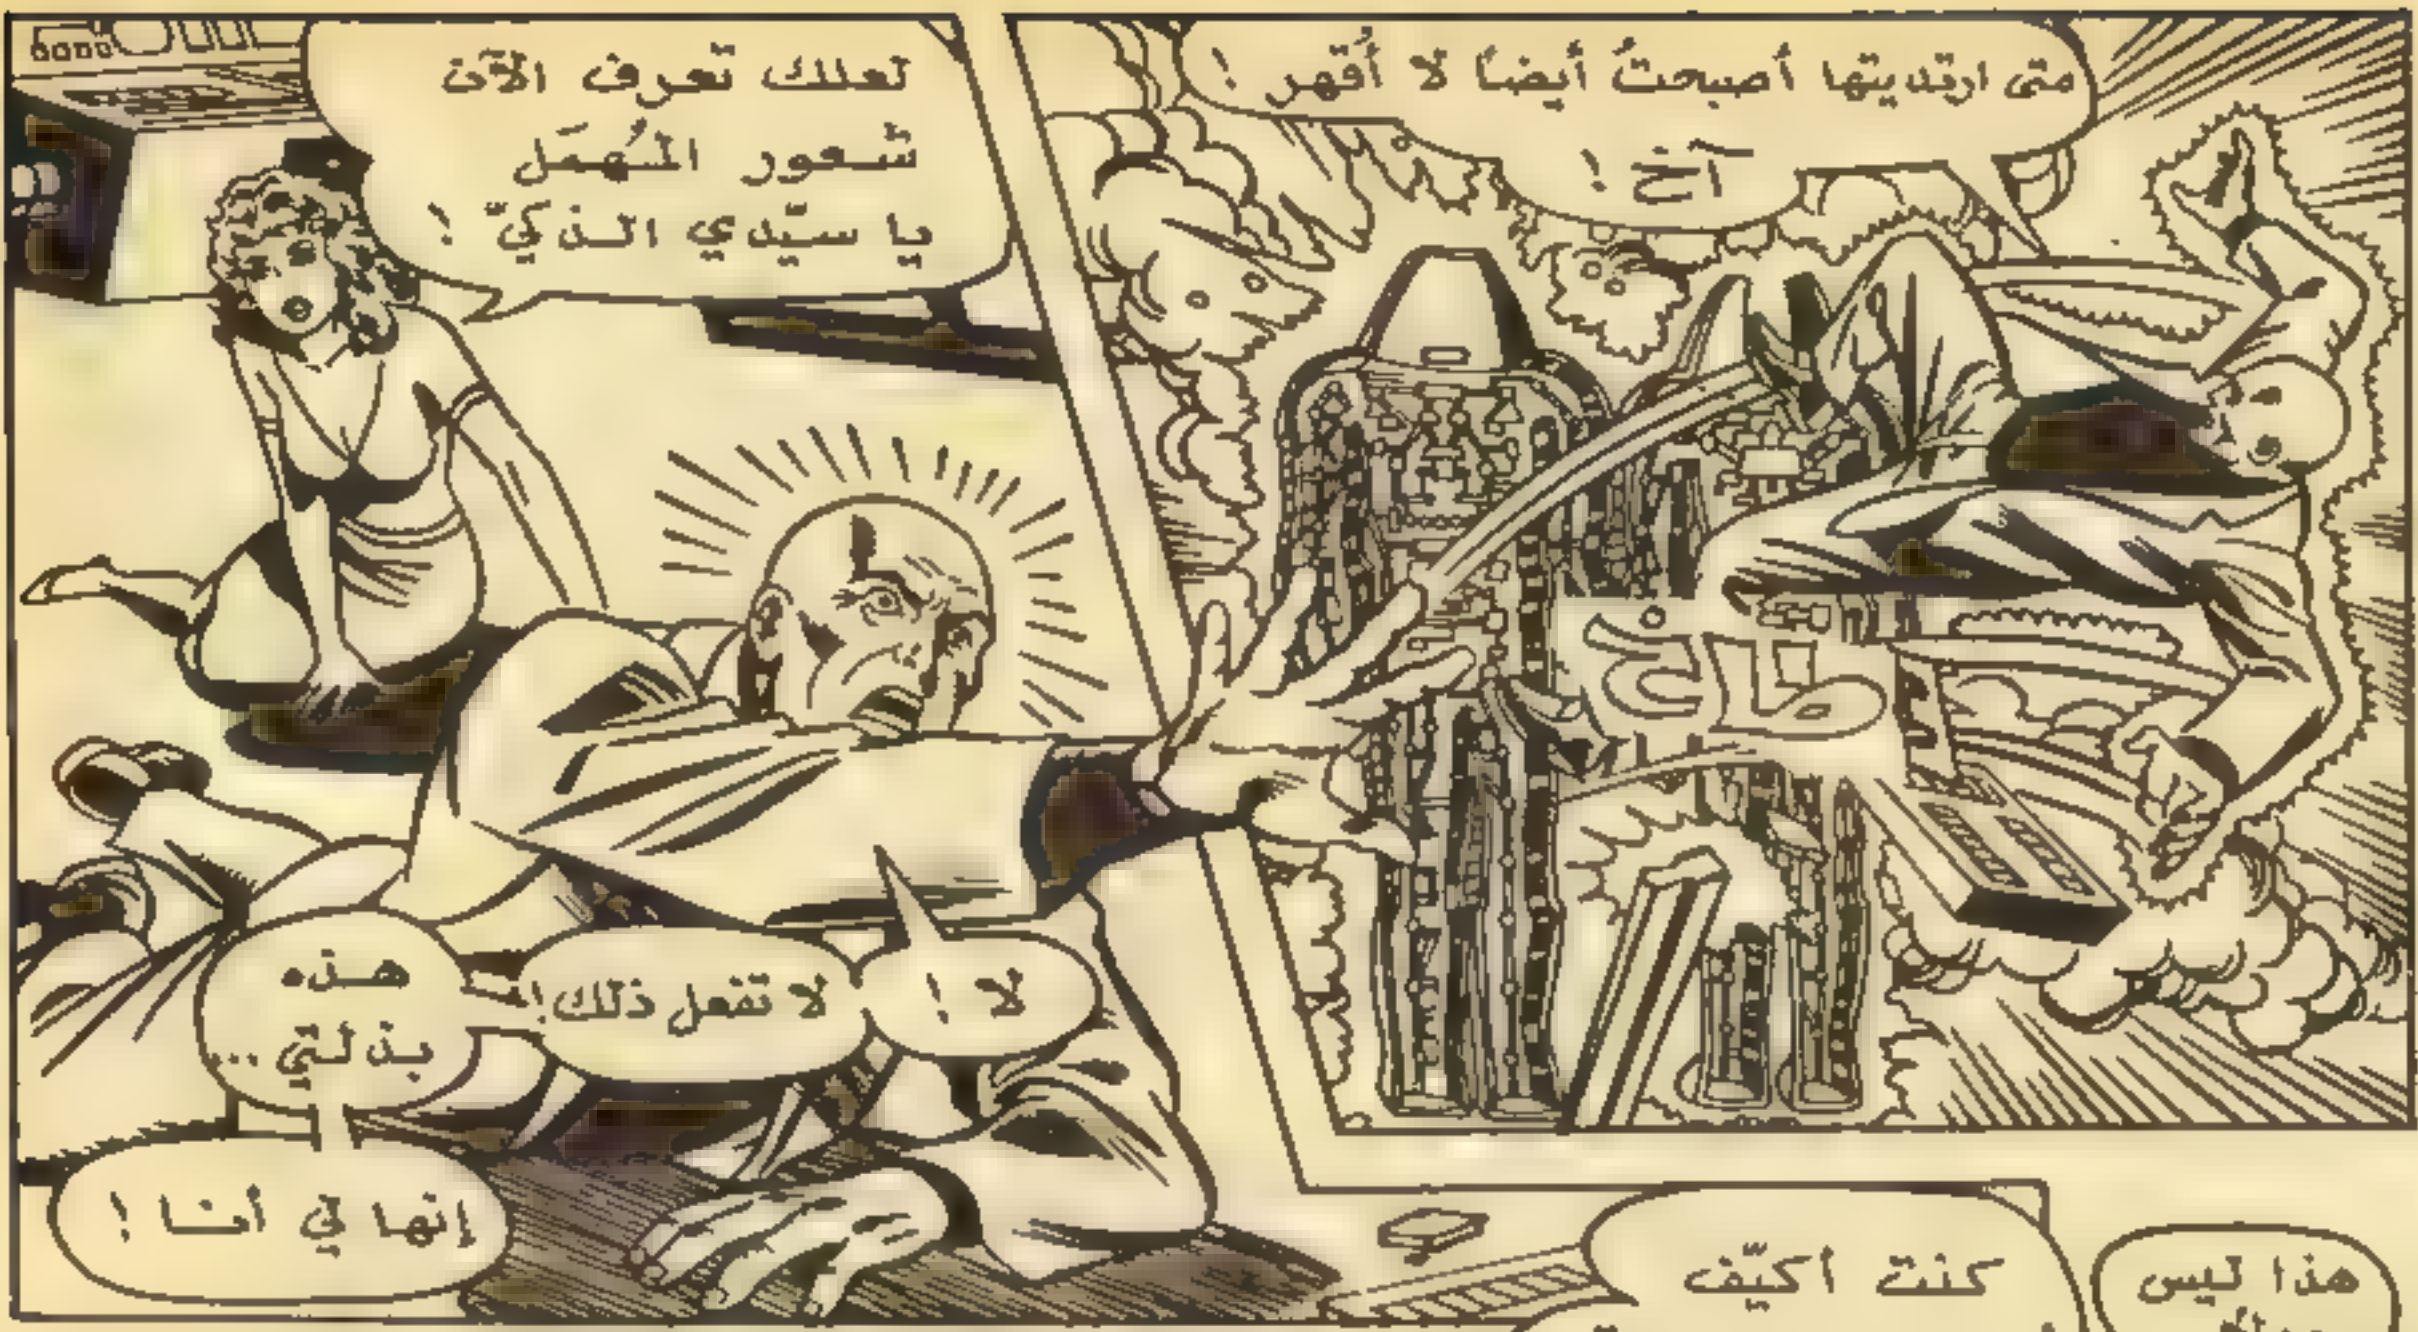 متى ارتديتها أصبحتُ أيضاً لا أُقهر !
آخ !
طاخ
لعلك تعرف الآن
شعور المُهمَل
يا سيّدي الذكيّ !
لا !
لا تفعل ذلك !
هذه
بذلتي ...
إنها لي أنا !
هذا ليس
كنت أكيّف